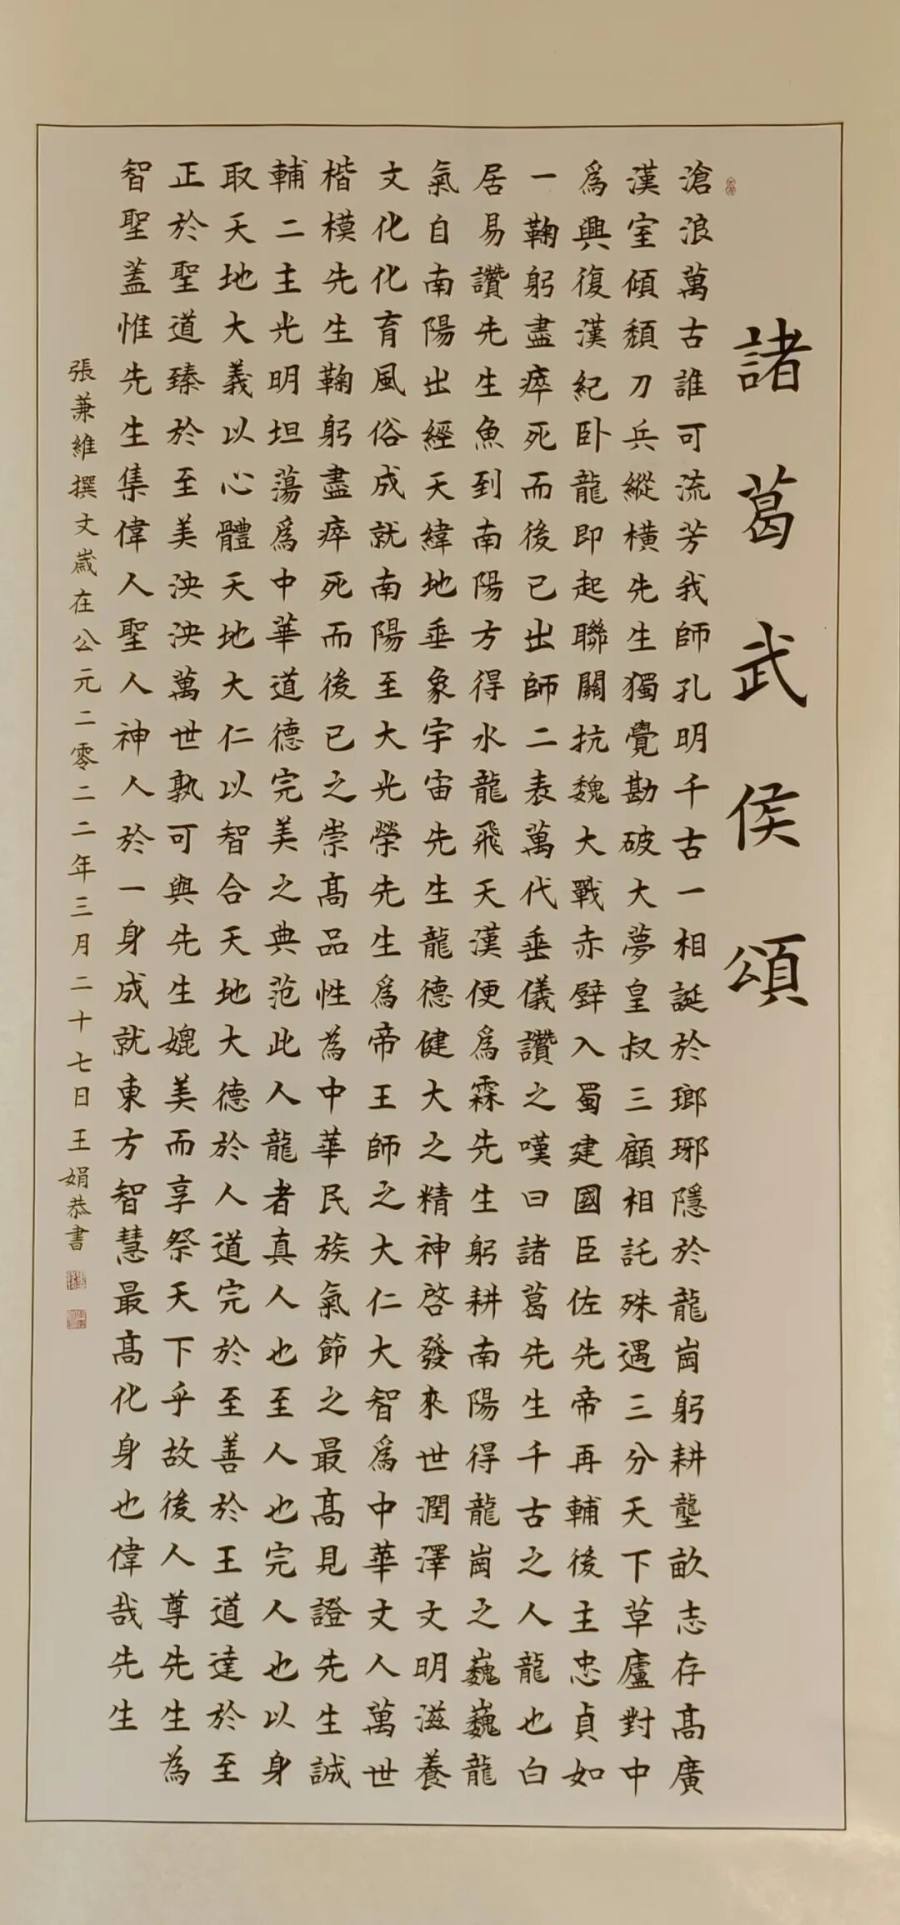 諸葛武侯頌
滄浪萬古誰可流芳我師孔明千古一相誕於瑯琊隱於龍崗躬耕壟畝志存高廣
漢室傾頹刀兵縱橫先生獨覺勘破大夢皇叔三顧相託殊遇三分天下草廬對中
爲興復漢紀卧龍即起聯關抗魏大戰赤壁入蜀建國臣佐先帝再輔後主忠貞如
一鞠躬盡瘁死而後已出師二表萬代垂儀讚之嘆曰諸葛先生千古之人龍也白
居易讚先生魚到南陽方得水龍飛天漢便爲霖先生躬耕南陽得龍崗之巍巍龍
氣自南陽出經天緯地垂象宇宙先生龍德健大之精神啓發來世潤澤文明滋養
文化化育風俗成就南陽至大光榮先生爲帝王師之大仁大智爲中華文人萬世
楷模先生鞠躬盡瘁死而後已之崇高品性為中華民族氣節之最高見證先生誠
輔二主光明坦蕩爲中華道德完美之典范此人龍者真人也至人也完人也以身
取天地大義以心體天地大仁以智合天地大德於人道完於至善於王道達於至
正於聖道臻於至美泱泱萬世孰可與先生媲美而享祭天下乎故後人尊先生為
智聖蓋惟先生集偉人聖人神人於一身成就東方智慧最高化身也偉哉先生
張兼維撰文歲在公元二零二二年三月二十七日王娟恭書